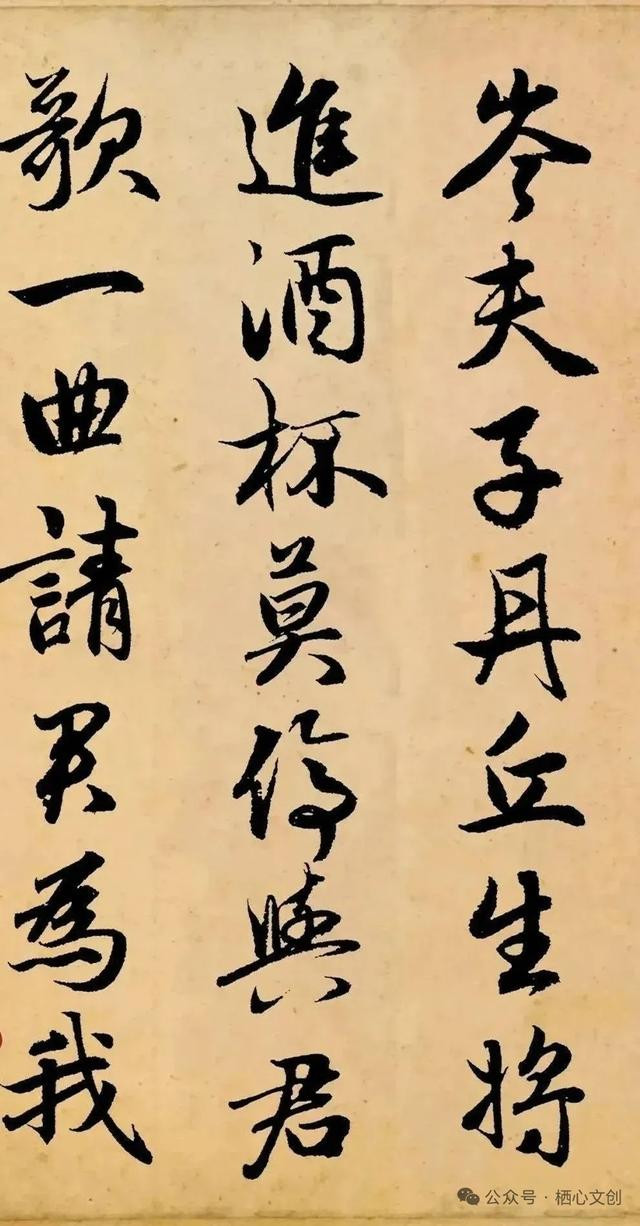 岑夫子丹丘生将
進酒杯莫停與君
歌一曲請君為我
公众号·栖心文创